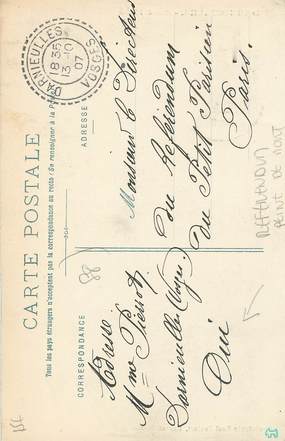 CARTE POSTALE
Tous les pays étrangers n'acceptent pas la correspondance au recto (Se renseigner à la Poste)
CORRESPONDANCE
ADRESSE
DARNIEULLES
18 35
13 -10
07
VOSGES
Adresse
Mme Pierrot
Darnieulles (Vosges)
Oui
Monsieur le Directeur
du Referendum
du Petit Parisien
Paris.
88
REFERENDUM
PEINE DE MORT
15€